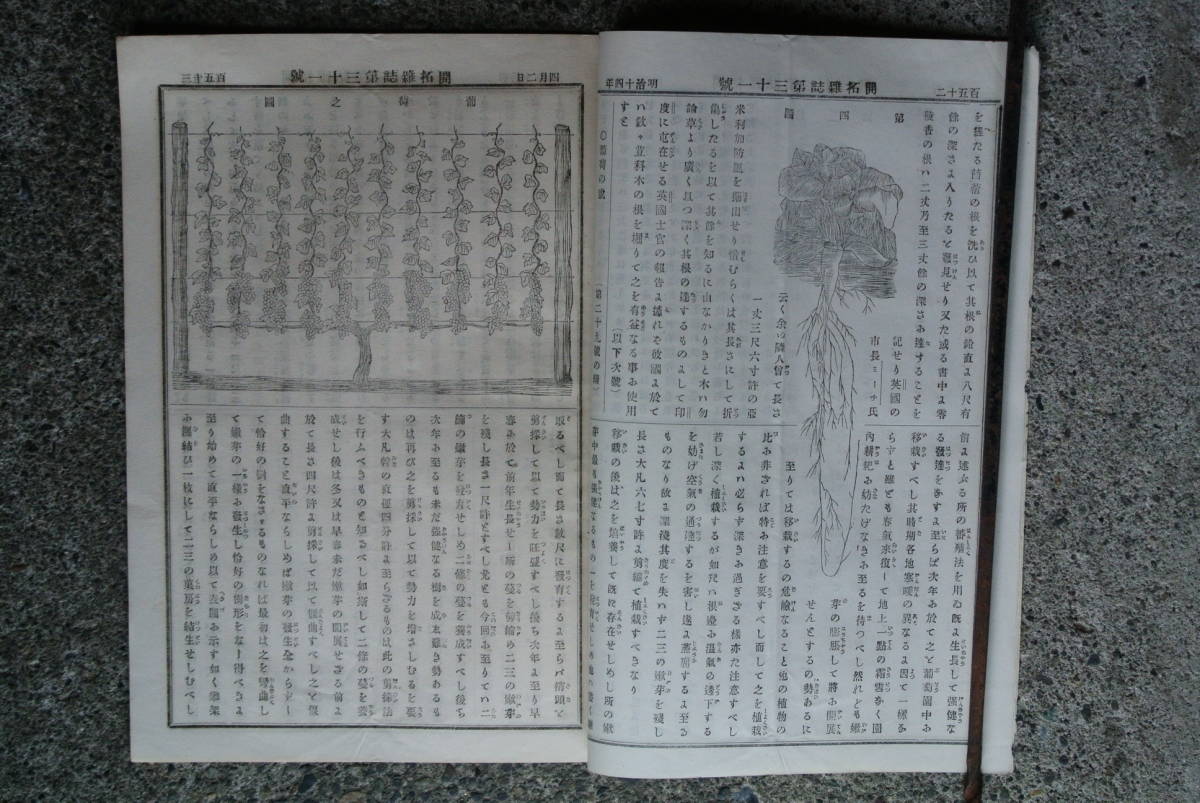 百五十二
開拓雜誌第三十一號
明治十四年
を經たる苜蓿の根を洗ひ以て其根の鉛直よ八尺有
餘の深さよ入りたると發見せり又た或る書中よ零
陵香の根ハ二丈乃至三丈餘の深さよ達することを
第四圖
記せり英國の
市長ミーチ氏
云く余の隣人曾て長さ
一丈三尺六寸許の亞
米利加防風を掘出せり惜むらくは其長さにして折
傷したるを以て其餘を知るに由なかりきと木ハ勿
論草より廣く且つ深く其根の達するものよして印
度に屯在せる英國士官の報告よ據れを彼國よ於て
ハ數々荳科木の根を堀りて之を有益なる事よ使用
すと
(以下次號)
○葡萄の說
(第二十九號の續)
前よ述ふる所の蕃殖法を用ゐ既よ生長して强健な
る發達をなすよ至らば次年よ於て之と葡萄園中よ
移栽すべし其時期各地寒暖の異なるよ因て一樣な
らずと雖とも春氣來復して地上一點の霜雪なく園
內耕耙よ妨たげなきよ至るを待つべし然れども嫩
芽の膨脹して將よ開展
せんとするの勢あるに
至りては移栽するの危險なること他の植物の
比よ非されば特よ注意を要すべし而して之を植栽
するよハ必らず深きよ過ぎさる樣亦た注意すべし
若し深く植栽するが如きハ根邊よ溫氣の達下する
を妨げ空氣の通達するを害し遂よ蒸腐するよ至る
ものなり故よ深淺其度を失ハず二三の嫩芽を殘し
長さ大凡六七寸許よ剪縮て植栽すべきなり
移栽の後は之を培養して既に存在せしめし所の嫩
芽中最も强健なるもの一を發育せしめ他の悉く摘
四月二日
開拓雜誌第三十一號
百五十三
葡萄之圖
取るべし而て長さ數尺に發育するよ至らバ梢頭と
剪採して以て勢力を旺盛すべし優ち次年よ至り早
春よ於て前年生長せし所の蔓を剪縮め二三の嫩芽
を殘し長さ一尺許とすべし尤とも今回よ至りてハ二
個の嫩芽を發育せしめ二條の蔓を養成すべし後ち
次年よ至るも未だ强健なる樹を成ね難き勢あるも
のは再び之を剪採して以て勢力を增さしむるを要
す大凡幹の直徑四分許よ至らあるものは此の剪採法
を行ふべきものと知るべし如斯して二條の蔓を養
成せし後は冬又は早春未だ嫩芽の開展せざる前よ
於て長さ四尺許よ剪採して以て彎曲すべし之と彎
曲すること直平ならしめば嫩芽の發生全からずし
て恰好の樹をなさゞるものなれば最初は之を彎曲し
て嫩芽の一樣よ發生し恰好の樹形をなし得べきよ
至り始めて直平ならしめ以て表圖よ示す如く棚架
よ團結ひ一枝にして二三の菓房を結生せしむべし